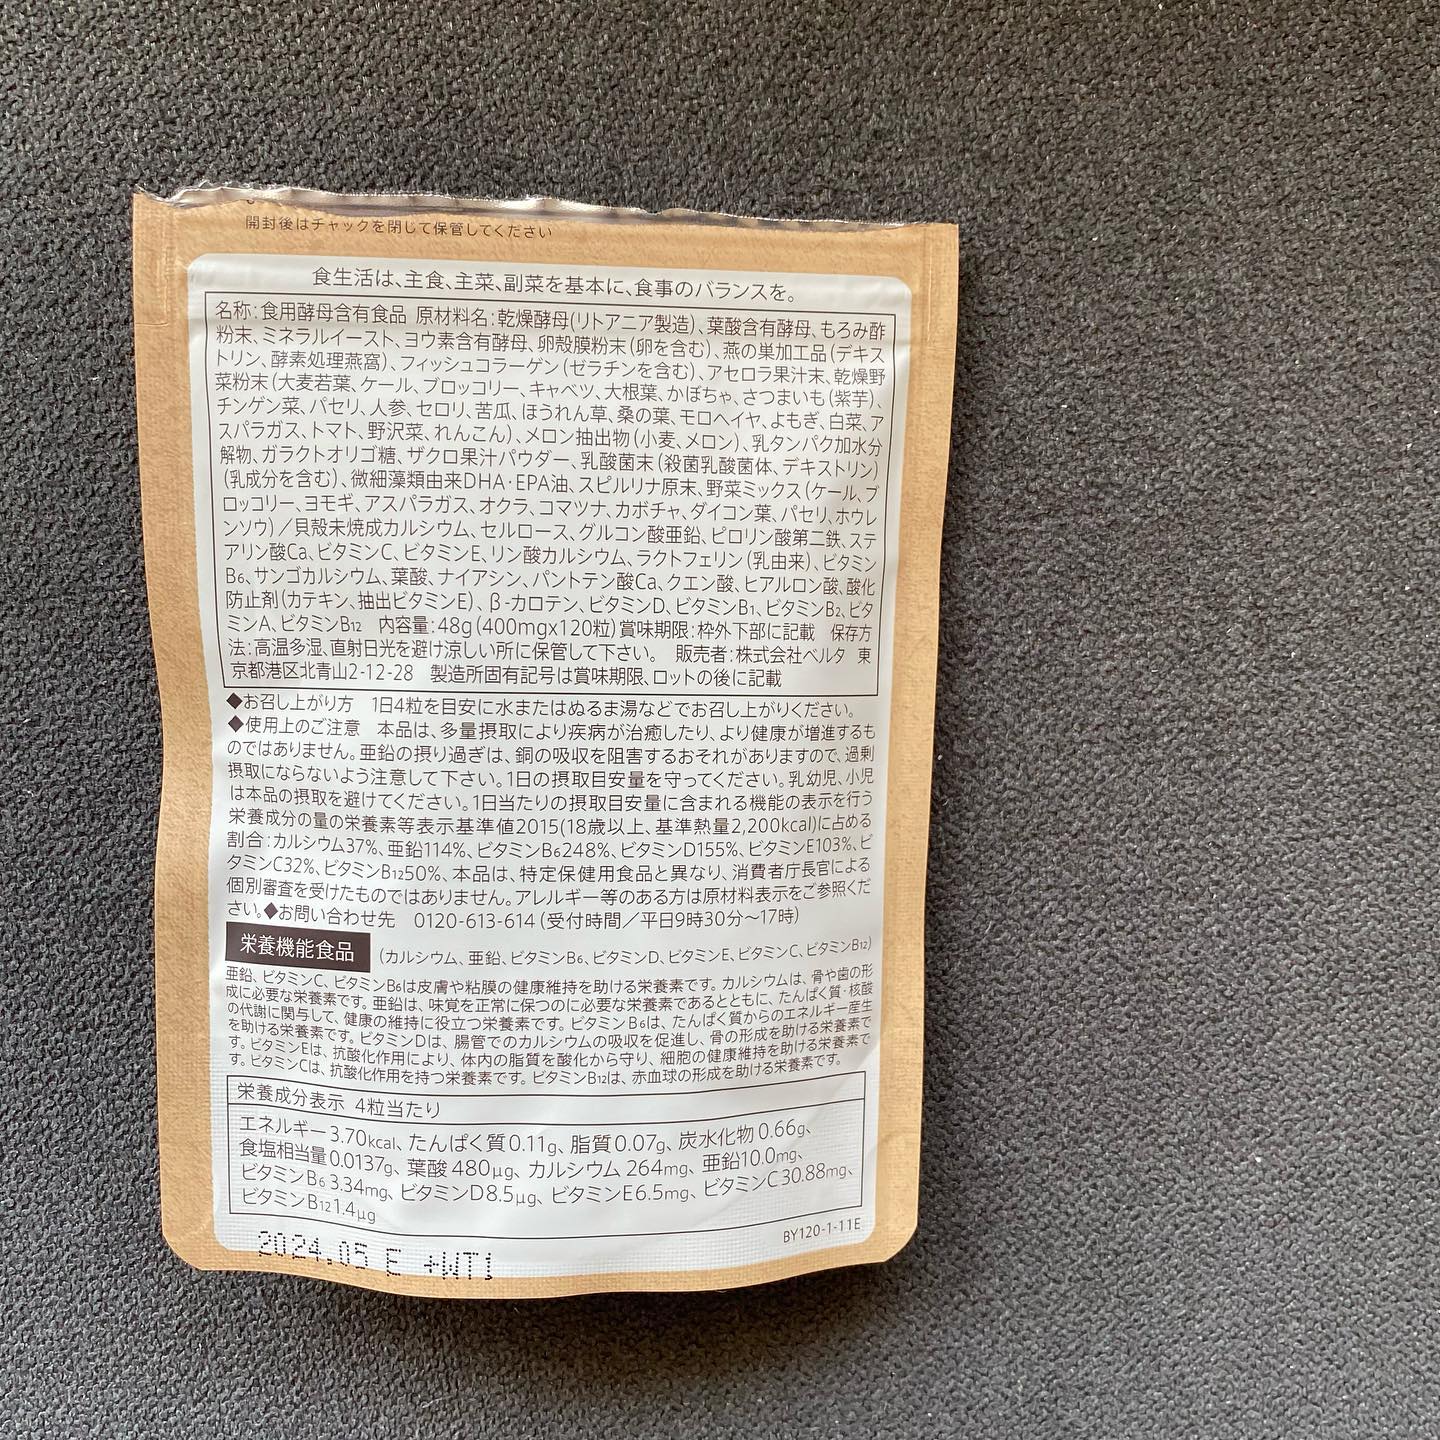 開封後はチャックを閉じて保管してください
食生活は、主食、主菜、副菜を基本に、食事のバランスを。
名称:食用酵母含有食品 原材料名:乾燥酵母(リトアニア製造)、葉酸含有酵母、もろみ酢
粉末、ミネラルイースト、ヨウ素含有酵母、卵殻膜粉末(卵を含む)、燕の巣加工品(デキス
トリン、酵素処理燕窩)、フィッシュコラーゲン(ゼラチンを含む)、アセロラ果汁末、乾燥野
菜粉末(大麦若葉、ケール、ブロッコリー、キャベツ、大根葉、かぼちゃ、さつまいも(紫芋)、
チンゲン菜、パセリ、人参、セロリ、苦瓜、ほうれん草、桑の葉、モロヘイヤ、よもぎ、白菜、ア
スパラガス、トマト、野沢菜、れんこん)、メロン抽出物(小麦、メロン)、乳タンパク加水分
解物、ガラクトオリゴ糖、ザクロ果汁パウダー、乳酸菌末(殺菌乳酸菌体、デキストリン)
(乳成分を含む)、微細藻類由来DHA・EPA油、スピルリナ原末、野菜ミックス(ケール、ブ
ロッコリー、ヨモギ、アスパラガス、オクラ、コマツナ、カボチャ、ダイコン葉、パセリ、ホウレ
ンソウ)/貝殻未焼成カルシウム、セルロース、グルコン酸亜鉛、ピロリン酸第二鉄、ステ
アリン酸Ca、ビタミンC、ビタミンE、リン酸カルシウム、ラクトフェリン(乳由来)、ビタミン
B6、サンゴカルシウム、葉酸、ナイアシン、パントテン酸Ca、クエン酸、ヒアルロン酸、酸化
防止剤(カテキン、抽出ビタミンE)、β-カロテン、ビタミンD、ビタミンB1、ビタミンB2、ビタ
ミンA、ビタミンB12 内容量:48g(400mgx120粒)賞味期限:枠外下部に記載 保存方
法:高温多湿、直射日光を避け涼しい所に保管して下さい。 販売者:株式会社ベルタ 東
京都港区北青山2-12-28 製造所固有記号は賞味期限、ロットの後に記載
◆お召し上がり方 1日4粒を目安に水またはぬるま湯などでお召し上がりください。
◆使用上のご注意 本品は、多量摂取により疾病が治癒したり、より健康が増進するも
のではありません。亜鉛の摂り過ぎは、銅の吸収を阻害するおそれがありますので、過剰
摂取にならないよう注意して下さい。1日の摂取目安量を守ってください。乳幼児、小児
は本品の摂取を避けてください。1日当たりの摂取目安量に含まれる機能の表示を行う
栄養成分の量の栄養素等表示基準値2015(18歳以上、基準熱量2,200kcal)に占める
割合:カルシウム37%、亜鉛114%、ビタミンB6248%、ビタミンD155%、ビタミンE103%、ビ
タミンC32%、ビタミンB1250%、本品は、特定保健用食品と異なり、消費者庁長官による
個別審査を受けたものではありません。アレルギー等のある方は原材料表示をご参照くだ
さい。◆お問い合わせ先 0120-613-614(受付時間/平日9時30分〜17時)
栄養機能食品 (カルシウム、亜鉛、ビタミンB6、ビタミンD、ビタミンE、ビタミンC、ビタミンB12)
亜鉛、ビタミンC、ビタミンB6は皮膚や粘膜の健康維持を助ける栄養素です。カルシウムは、骨や歯の形
成に必要な栄養素です。亜鉛は、味覚を正常に保つのに必要な栄養素であるとともに、たんぱく質・核酸
の代謝に関与して、健康の維持に役立つ栄養素です。ビタミンB6は、たんぱく質からのエネルギー産生
を助ける栄養素です。ビタミンDは、腸管でのカルシウムの吸収を促進し、骨の形成を助ける栄養素で
す。ビタミンEは、抗酸化作用により、体内の脂質を酸化から守り、細胞の健康維持を助ける栄養素で
す。ビタミンCは、抗酸化作用を持つ栄養素です。ビタミンB12は、赤血球の形成を助ける栄養素です。
栄養成分表示 4粒当たり
エネルギー3.70kcal、たんぱく質0.11g、脂質0.07g、炭水化物0.66g、
食塩相当量0.0137g、葉酸480μg、カルシウム264mg、亜鉛10.0mg、
ビタミンB6 3.34mg、ビタミンD8.5μg、ビタミンE6.5mg、ビタミンC30.88mg、
ビタミンB121.4μg
BY120-1-11E
2024.05 E +WT1